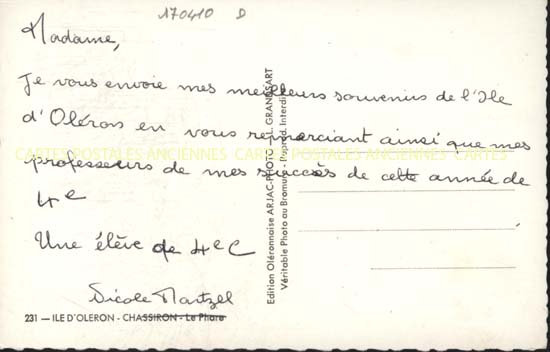 170410 D
Madame,
Je vous envoie mes meilleurs souvenirs de l'Ile
d'Oléron en vous remerciant ainsi que mes
professeurs de mes succès de cette année de
4e
Une élève de 4eC
Nicole Martzel
CARTES POSTALES ANCIENNES CARTES POSTALES ANCIENNES CARTES
Edition Oléronnaise ARJAC-PHOTO - L. GRANDSART
Véritable Photo au Bromure - Reprod. Interdite
231 — ILE D'OLERON - CHASSIRON - Le Phare